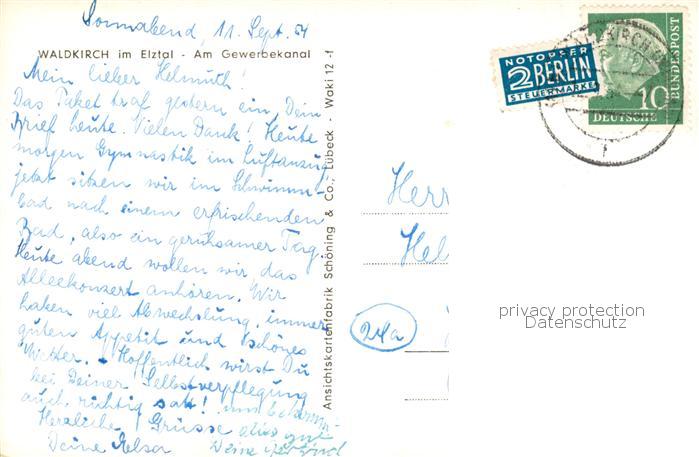 Sonnabend, 11. Sept. 54
WALDKIRCH im Elztal - Am Gewerbekanal
Mein lieber Helmuth!
Das Paket traf gestern ein, Dein
Brief heute. Vielen Dank! Heute
morgen Gymnastik im Luftanzug,
jetzt sitzen wir im Schwimm-
bad nach einem erfrischenden
Bad, also ein geruhsamer Tag.
Heute abend wollen wir das
Alleekonzert anhören. Wir
haben viel Abwechslung, immer
guten Appetit und schönes
Wetter. - Hoffentlich wirst Du
bei Deiner Selbstverpflegung
auch richtig satt! und
Herzliche Grüsse alles gut
Deine Deine
Ansichtskartenfabrik Schöning & Co., Lübeck - Waki 12
NOTOPFER
2 BERLIN
STEUERMARKE
10
DEUTSCHE
BUNDESPOST
Herr
Hel
24a
privacy protection
Datenschutz